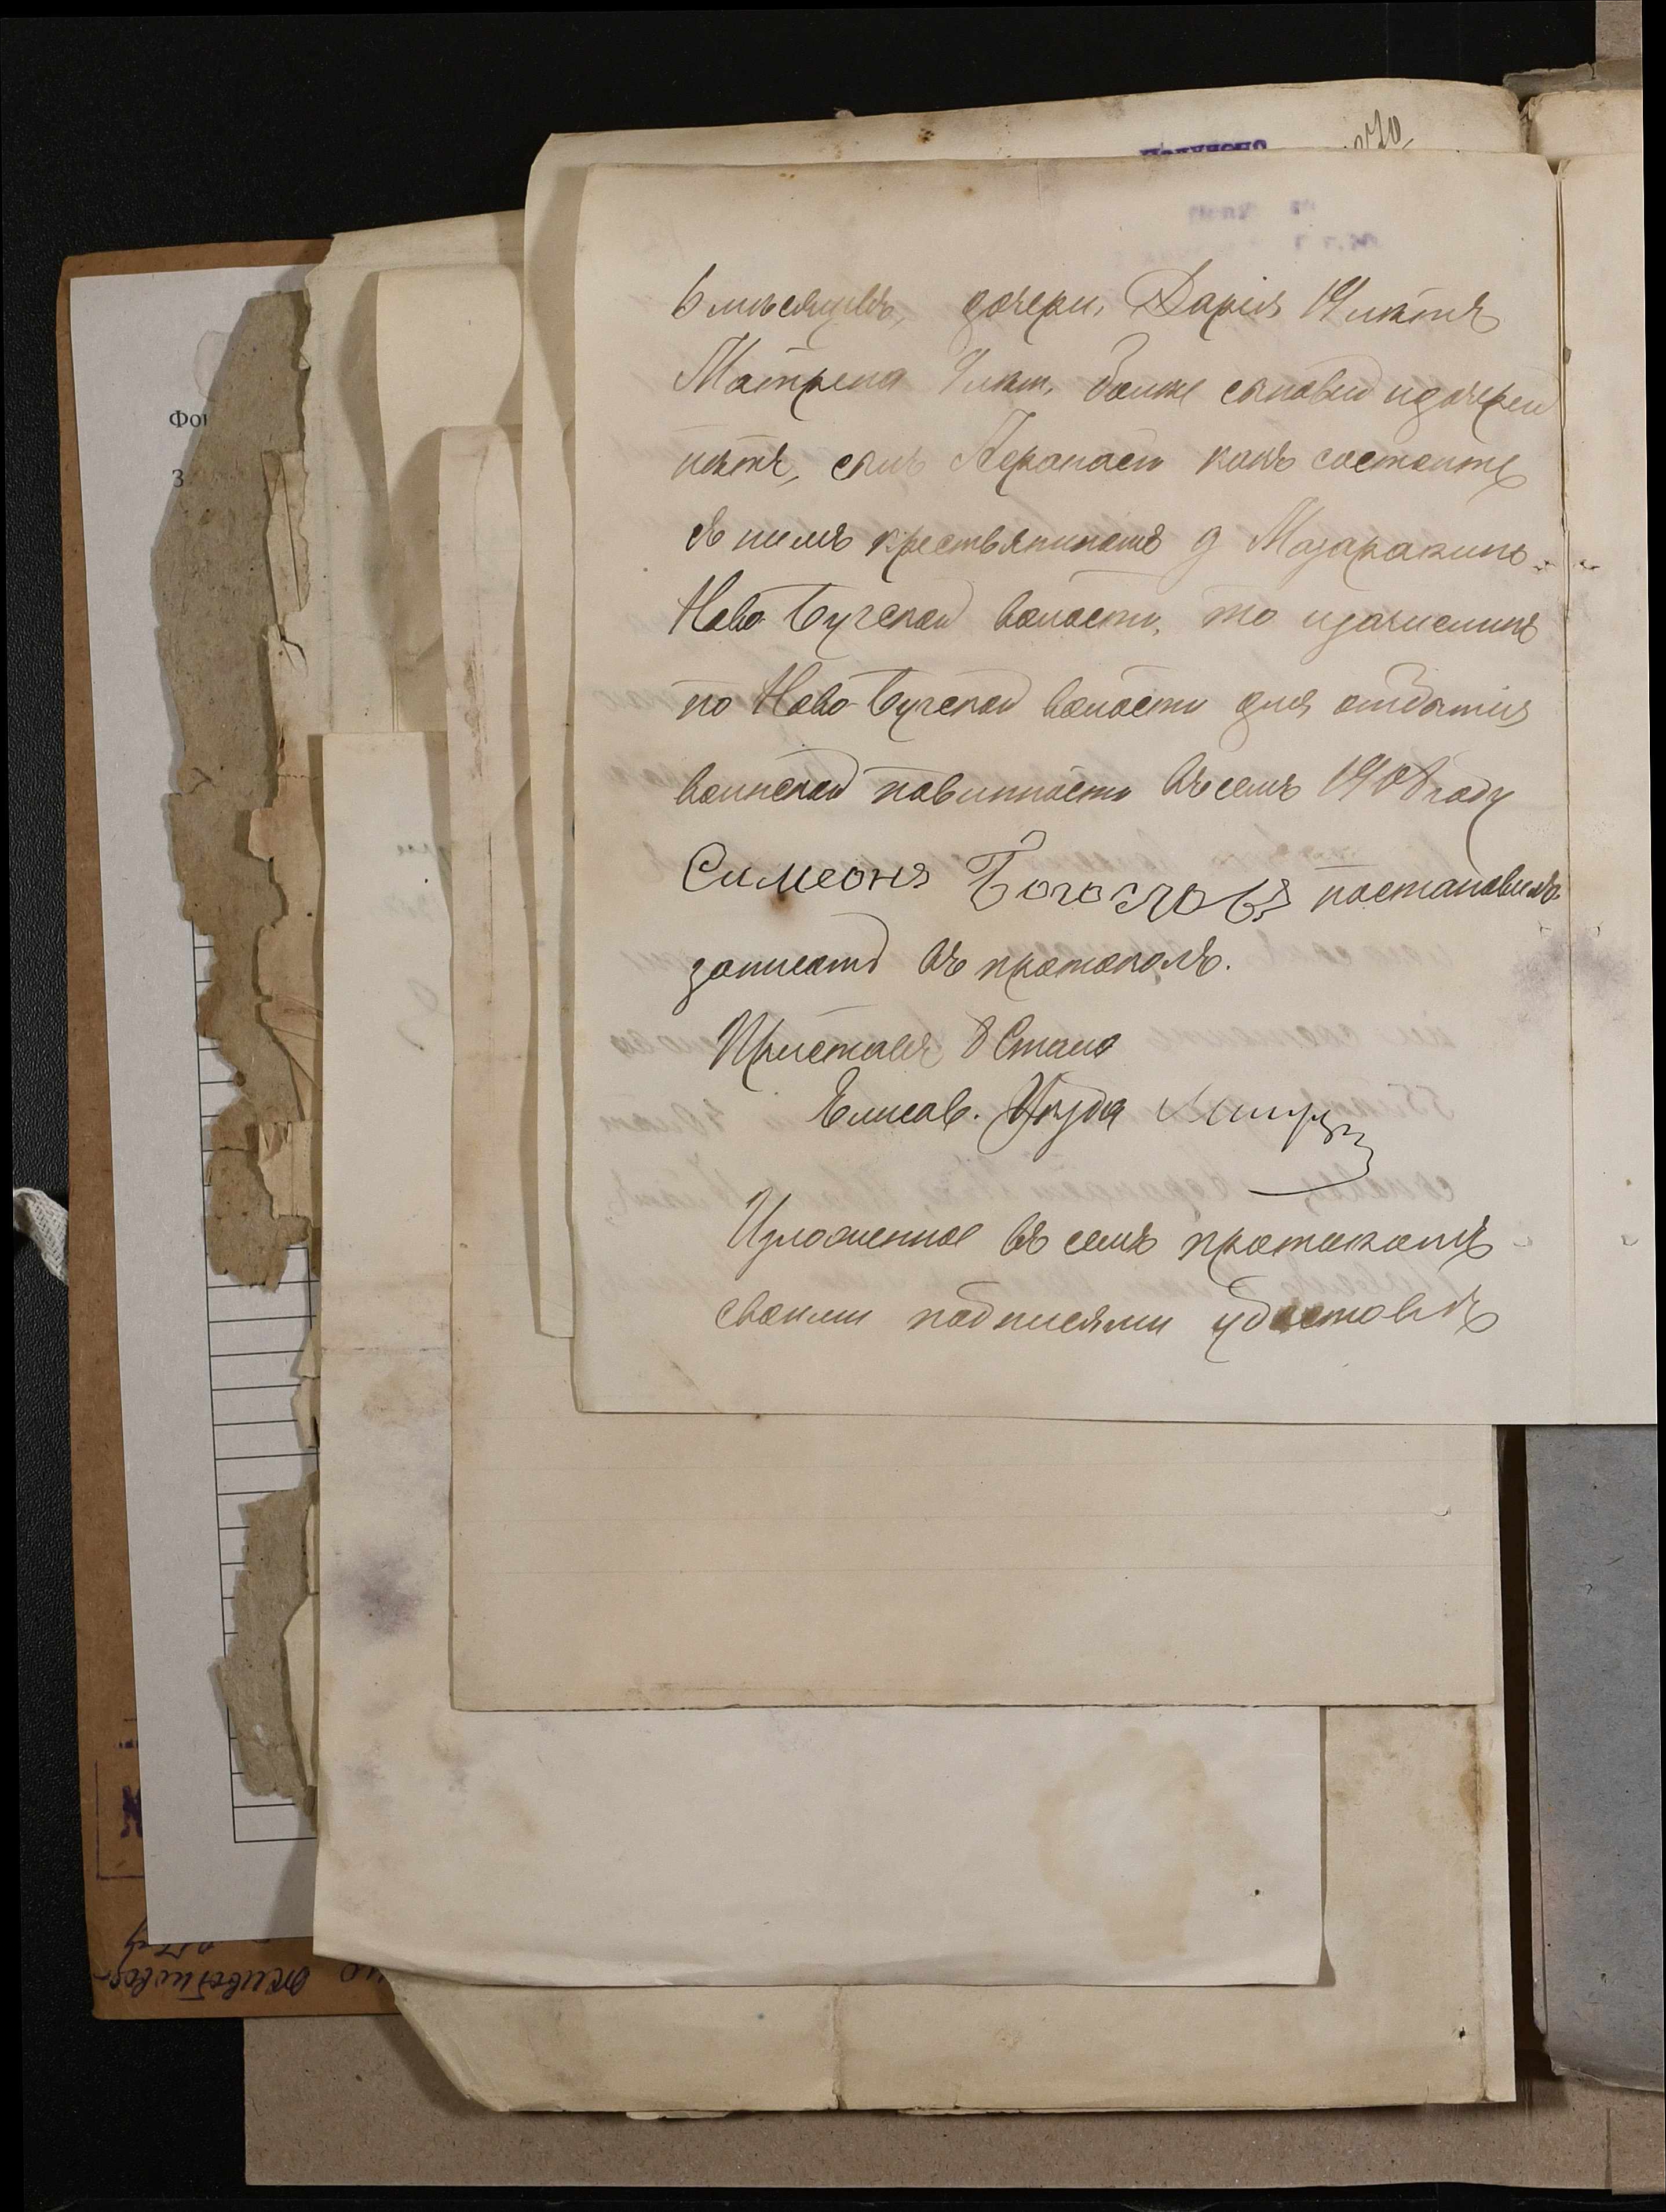 6 мѣсяцевъ, дочери, Дарія 19 лѣтъ
Матрена 9 лѣт. болѣе сыновей и дочерей
нѣтъ, сынъ какъ состоитъ
крестьяниномъ д
Ново-Бугской волости, то
по Ново-Бугской волости для отбытія
воинской повинности въ семъ 1908 году
Симеонъ Богословъ постановилъ:
записать въ протоколъ.
Приставъ 8 Стана
Елисав. Уѣзда
Изложенное въ семъ протоколѣ
своими подписями удостовѣ
Фон
З